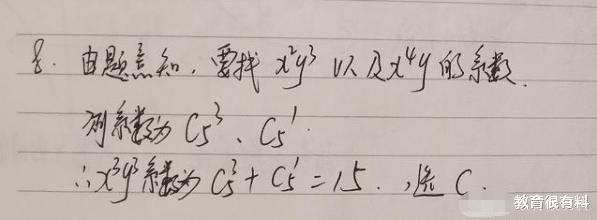 8. 由题意知,要找 x²y³ 以及 x⁴y 的系数.
则系数为 C₅³、C₅¹.
∴x³y³系数为 C₅³+C₅¹=15. 选 C.
教育很有料